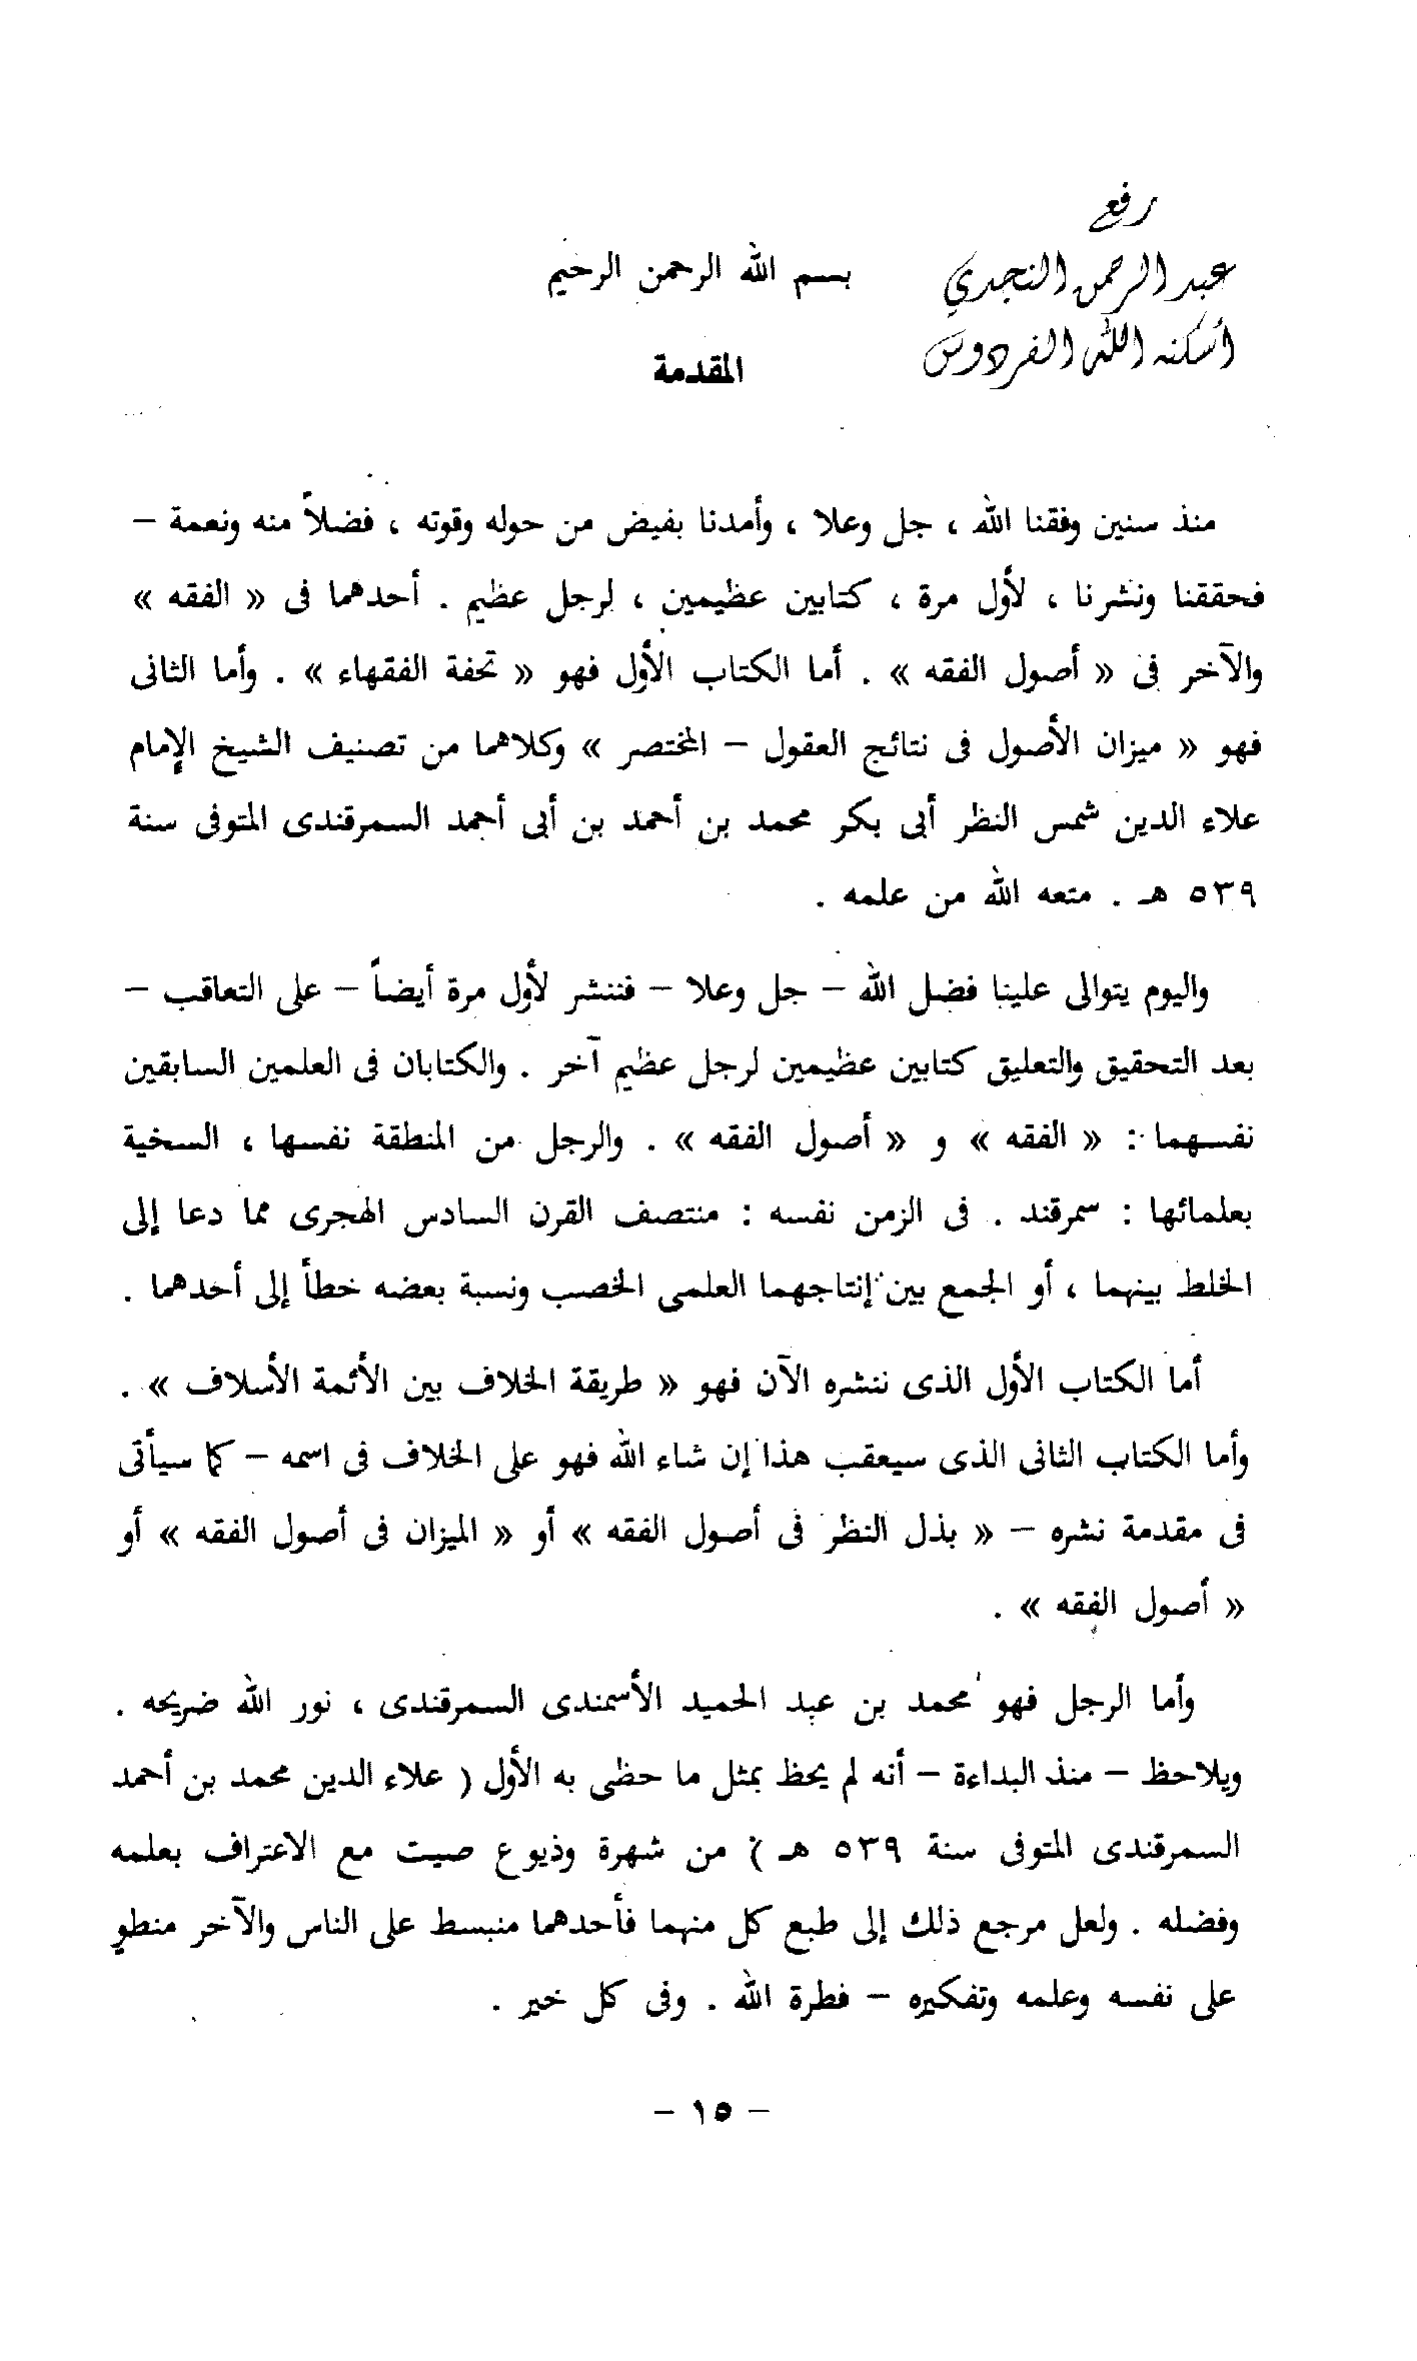 رفع
عبد الرحمن النجدي
أسكنه الله الفردوس
بسم الله الرحمن الرحيم
المقدمة
منذ سنين وفقنا الله ، جل وعلا ، وأمدنا بفيض من حوله وقوته ، فضلاً منه ونعمة –
فحققنا ونشرنا ، لأول مرة ، كتابين عظيمين ، لرجل عظيم . أحدهما فى « الفقه »
والآخر فى « أصول الفقه » . أما الكتاب الأول فهو « تحفة الفقهاء » . وأما الثانى
فهو « ميزان الأصول فى نتائج العقول – المختصر » وكلاهما من تصنيف الشيخ الإمام
علاء الدين شمس النظر أبى بكر محمد بن أحمد بن أبى أحمد السمرقندى المتوفى سنة
٥٣٩ هـ . متعه الله من علمه .
واليوم يتوالى علينا فضل الله – جل وعلا – فننشر لأول مرة أيضاً – على التعاقب –
بعد التحقيق والتعليق كتابين عظيمين لرجل عظيم آخر . والكتابان فى العلمين السابقين
نفسهما : « الفقه » و « أصول الفقه » . والرجل من المنطقة نفسها ، السخية
بعلمائها : سمرقند . فى الزمن نفسه : منتصف القرن السادس الهجرى مما دعا إلى
الخلط بينهما ، أو الجمع بين إنتاجهما العلمى الخصب ونسبة بعضه خطأ إلى أحدهما .
أما الكتاب الأول الذى ننشره الآن فهو « طريقة الخلاف بين الأئمة الأسلاف » .
وأما الكتاب الثانى الذى سيعقب هذا إن شاء الله فهو على الخلاف فى اسمه – كما سيأتى
فى مقدمة نشره – « بذل النظر فى أصول الفقه » أو « الميزان فى أصول الفقه » أو
« أصول الفقه » .
وأما الرجل فهو محمد بن عبد الحميد الأسمندى السمرقندى ، نور الله ضريحه .
ويلاحظ – منذ البداءة – أنه لم يحظ بمثل ما حظى به الأول ( علاء الدين محمد بن أحمد
السمرقندى المتوفى سنة ٥٣٩ هـ ) من شهرة وذيوع صيت مع الاعتراف بعلمه
وفضله . ولعل مرجع ذلك إلى طبع كل منهما فأحدهما منبسط على الناس والآخر منطوٍ
على نفسه وعلمه وتفكيره – فطرة الله . وفى كل خير .
– ١٥ –